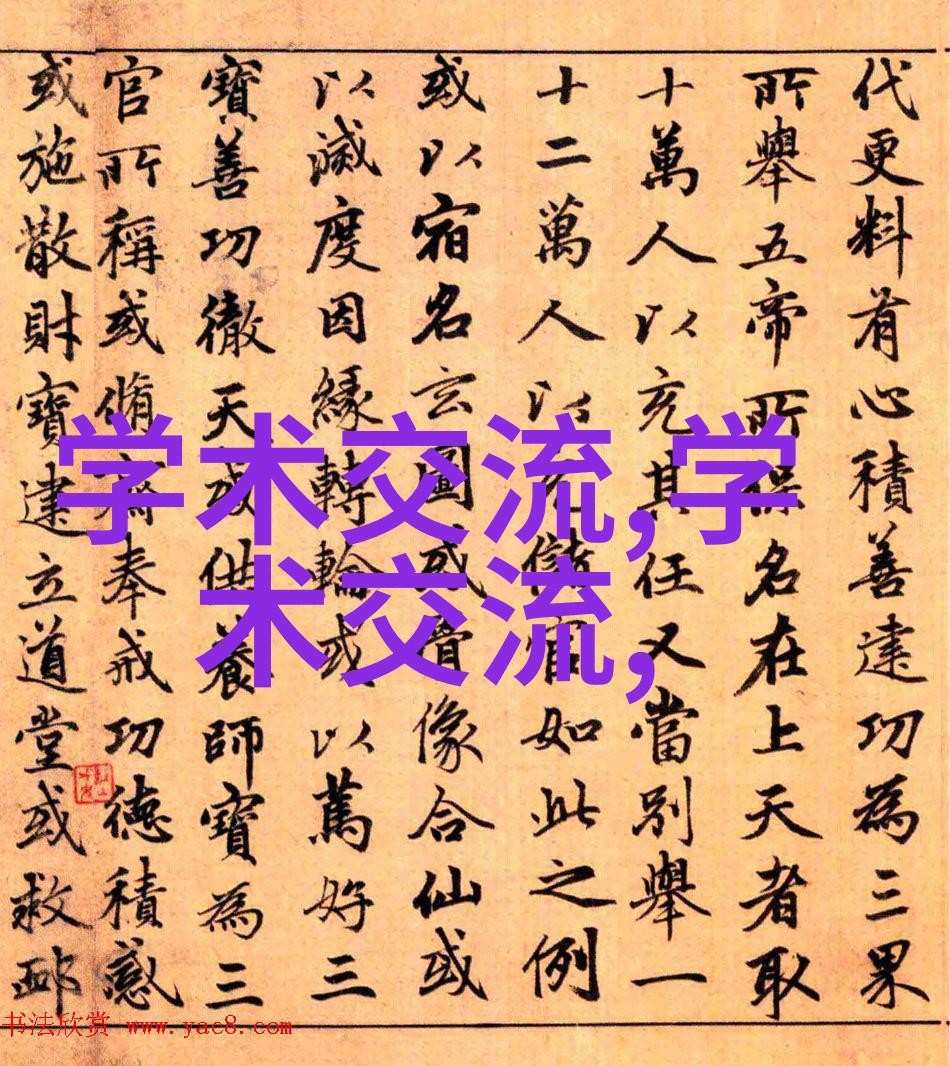 代更料有心積善建功為三果
所舉五帝所保名在上天者取
十萬人以充其任又當別舉一
十二萬人以充儲官如此之例
或以宿名玄圖骨像合仙或
以滅度因緣轉輪或以篤好三
寶善功徹天或供養師寶為三
官所稱或脩齋奉戒功德積感
或施散財寶建立道堂或救卹
学术交流,学
术交流,
书法欣赏 www.yac8.com